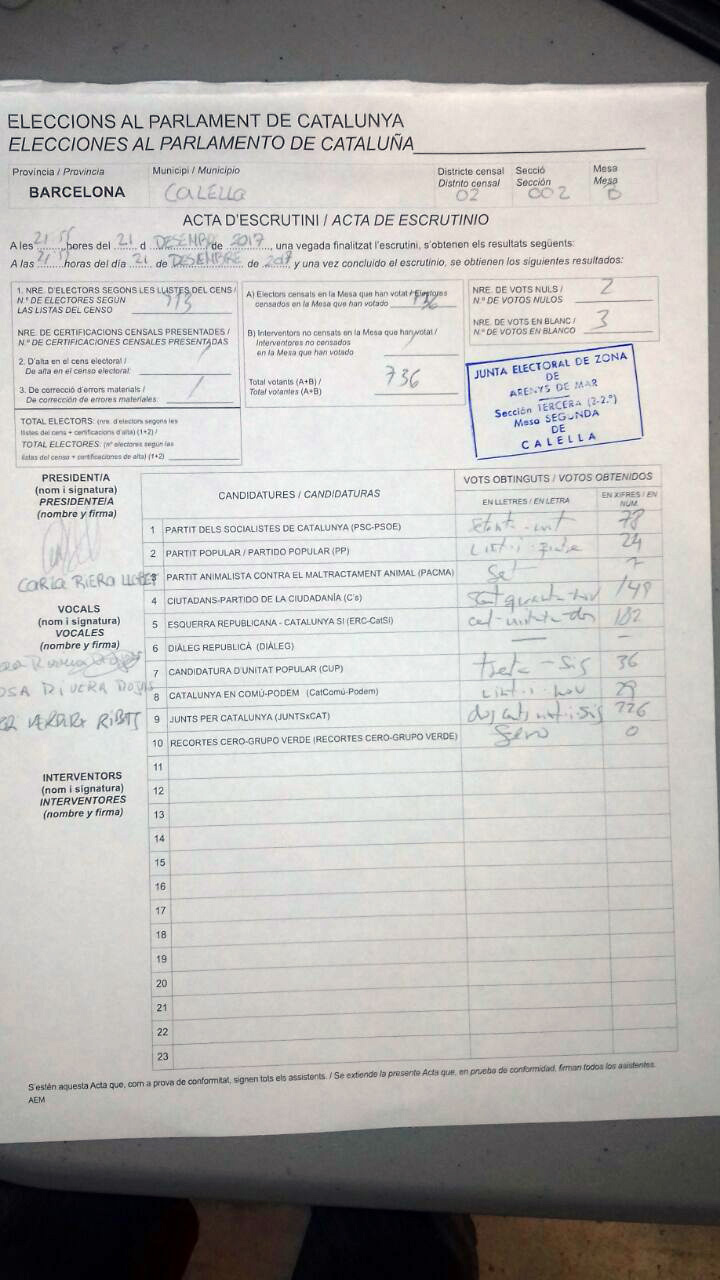 ELECCIONS AL PARLAMENT DE CATALUNYA
ELECCIONES AL PARLAMENTO DE CATALUÑA
Provincia / Provincia
BARCELONA
Municipi / Municipio
CALELLA
Districte censal
Distrito censal
02
Secció
Sección
002
Mesa
Mesa
B
ACTA D'ESCRUTINI / ACTA DE ESCRUTINIO
A les 21'55 hores del 21 d DESEMBRE de 2017, una vegada finalitzat l'escrutini, s'obtenen els resultats següents:
A las 21'55 horas del día 21 de DESEMBRE de 2017 y una vez concluido el escrutinio, se obtienen los siguientes resultados:
1. NRE. D'ELECTORS SEGONS LES LLISTES DEL CENS /
N.º DE ELECTORES SEGÚN
LAS LISTAS DEL CENSO
NRE. DE CERTIFICACIONS CENSALS PRESENTADES /
N.º DE CERTIFICACIONES CENSALES PRESENTADAS
2. D'alta en el cens electoral /
De alta en el censo electoral:
3. De correcció d'errors materials /
De corrección de errores materiales:
TOTAL ELECTORS: (nre. d'electors segons les
llistes del cens + certificacions d'alta) (1+2) /
TOTAL ELECTORES: (nº electores según las
listas del censo + certificaciones de alta) (1+2)
A) Electors censats en la Mesa que han votat / Electores
censados en la Mesa que han votado 736
B) Interventors no censats en la Mesa que han votat /
Interventores no censados
en la Mesa que han votado
Total votants (A+B) /
Total votantes (A+B)
736
NRE. DE VOTS NULS /
N.º DE VOTOS NULOS
2
NRE. DE VOTS EN BLANC /
N.º DE VOTOS EN BLANCO
3
JUNTA ELECTORAL DE ZONA
DE
ARENYS DE MAR
Sección TERCERA (2-2.º)
Mesa SEGUNDA
DE
CALELLA
PRESIDENT/A
(nom i signatura)
PRESIDENTE/A
(nombre y firma)
CARLA RIERA
VOCALS
(nom i signatura)
VOCALES
(nombre y firma)
ROSA RIVERA ROJAS
VERDURA RIBAS
INTERVENTORS
(nom i signatura)
INTERVENTORES
(nombre y firma)
CANDIDATURES / CANDIDATURAS
VOTS OBTINGUTS / VOTOS OBTENIDOS
EN LLETRES / EN LETRA
EN XIFRES / EN NÚM.
1 PARTIT DELS SOCIALISTES DE CATALUNYA (PSC-PSOE) 78
2 PARTIT POPULAR / PARTIDO POPULAR (PP) 24
3 PARTIT ANIMALISTA CONTRA EL MALTRACTAMENT ANIMAL (PACMA) Set 7
4 CIUTADANS-PARTIDO DE LA CIUDADANÍA (C's) 149
5 ESQUERRA REPUBLICANA - CATALUNYA SI (ERC-CatSí) 182
6 DIÀLEG REPUBLICÀ (DIÀLEG) — —
7 CANDIDATURA D'UNITAT POPULAR (CUP) trenta-sis 36
8 CATALUNYA EN COMÚ-PODEM (CatComú-Podem) vint-i-nou 29
9 JUNTS PER CATALUNYA (JUNTSxCAT) 226
10 RECORTES CERO-GRUPO VERDE (RECORTES CERO-GRUPO VERDE) Zero 0
11
12
13
14
15
16
17
18
19
20
21
22
23
S'estén aquesta Acta que, com a prova de conformitat, signen tots els assistents. / Se extiende la presente Acta que, en prueba de conformidad, firman todos los asistentes.
AEM